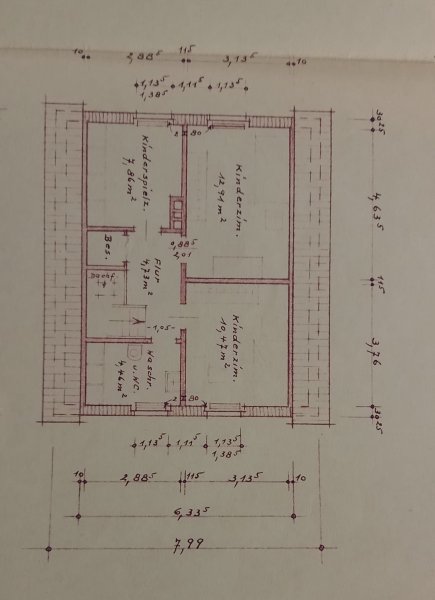 10 2,88⁵ 11⁵ 3,13⁵ 10
1,13⁵ 1,11⁵ 1,13⁵
1,38⁵
2 80
Kinderspielz.
7,86 m²
Kinderzim.
12,91 m²
0,88⁵
2,01
Bes.
Flur
4,73 m²
1,05
Kinderzim.
10,47 m²
Waschr.
u. WC.
4,46 m²
2 80
30 25
4,63⁵
11⁵
3,76
30 25
1,13⁵ 1,11⁵ 1,13⁵
1,38⁵
10 2,88⁵ 11⁵ 3,13⁵ 10
6,33⁵
7,99